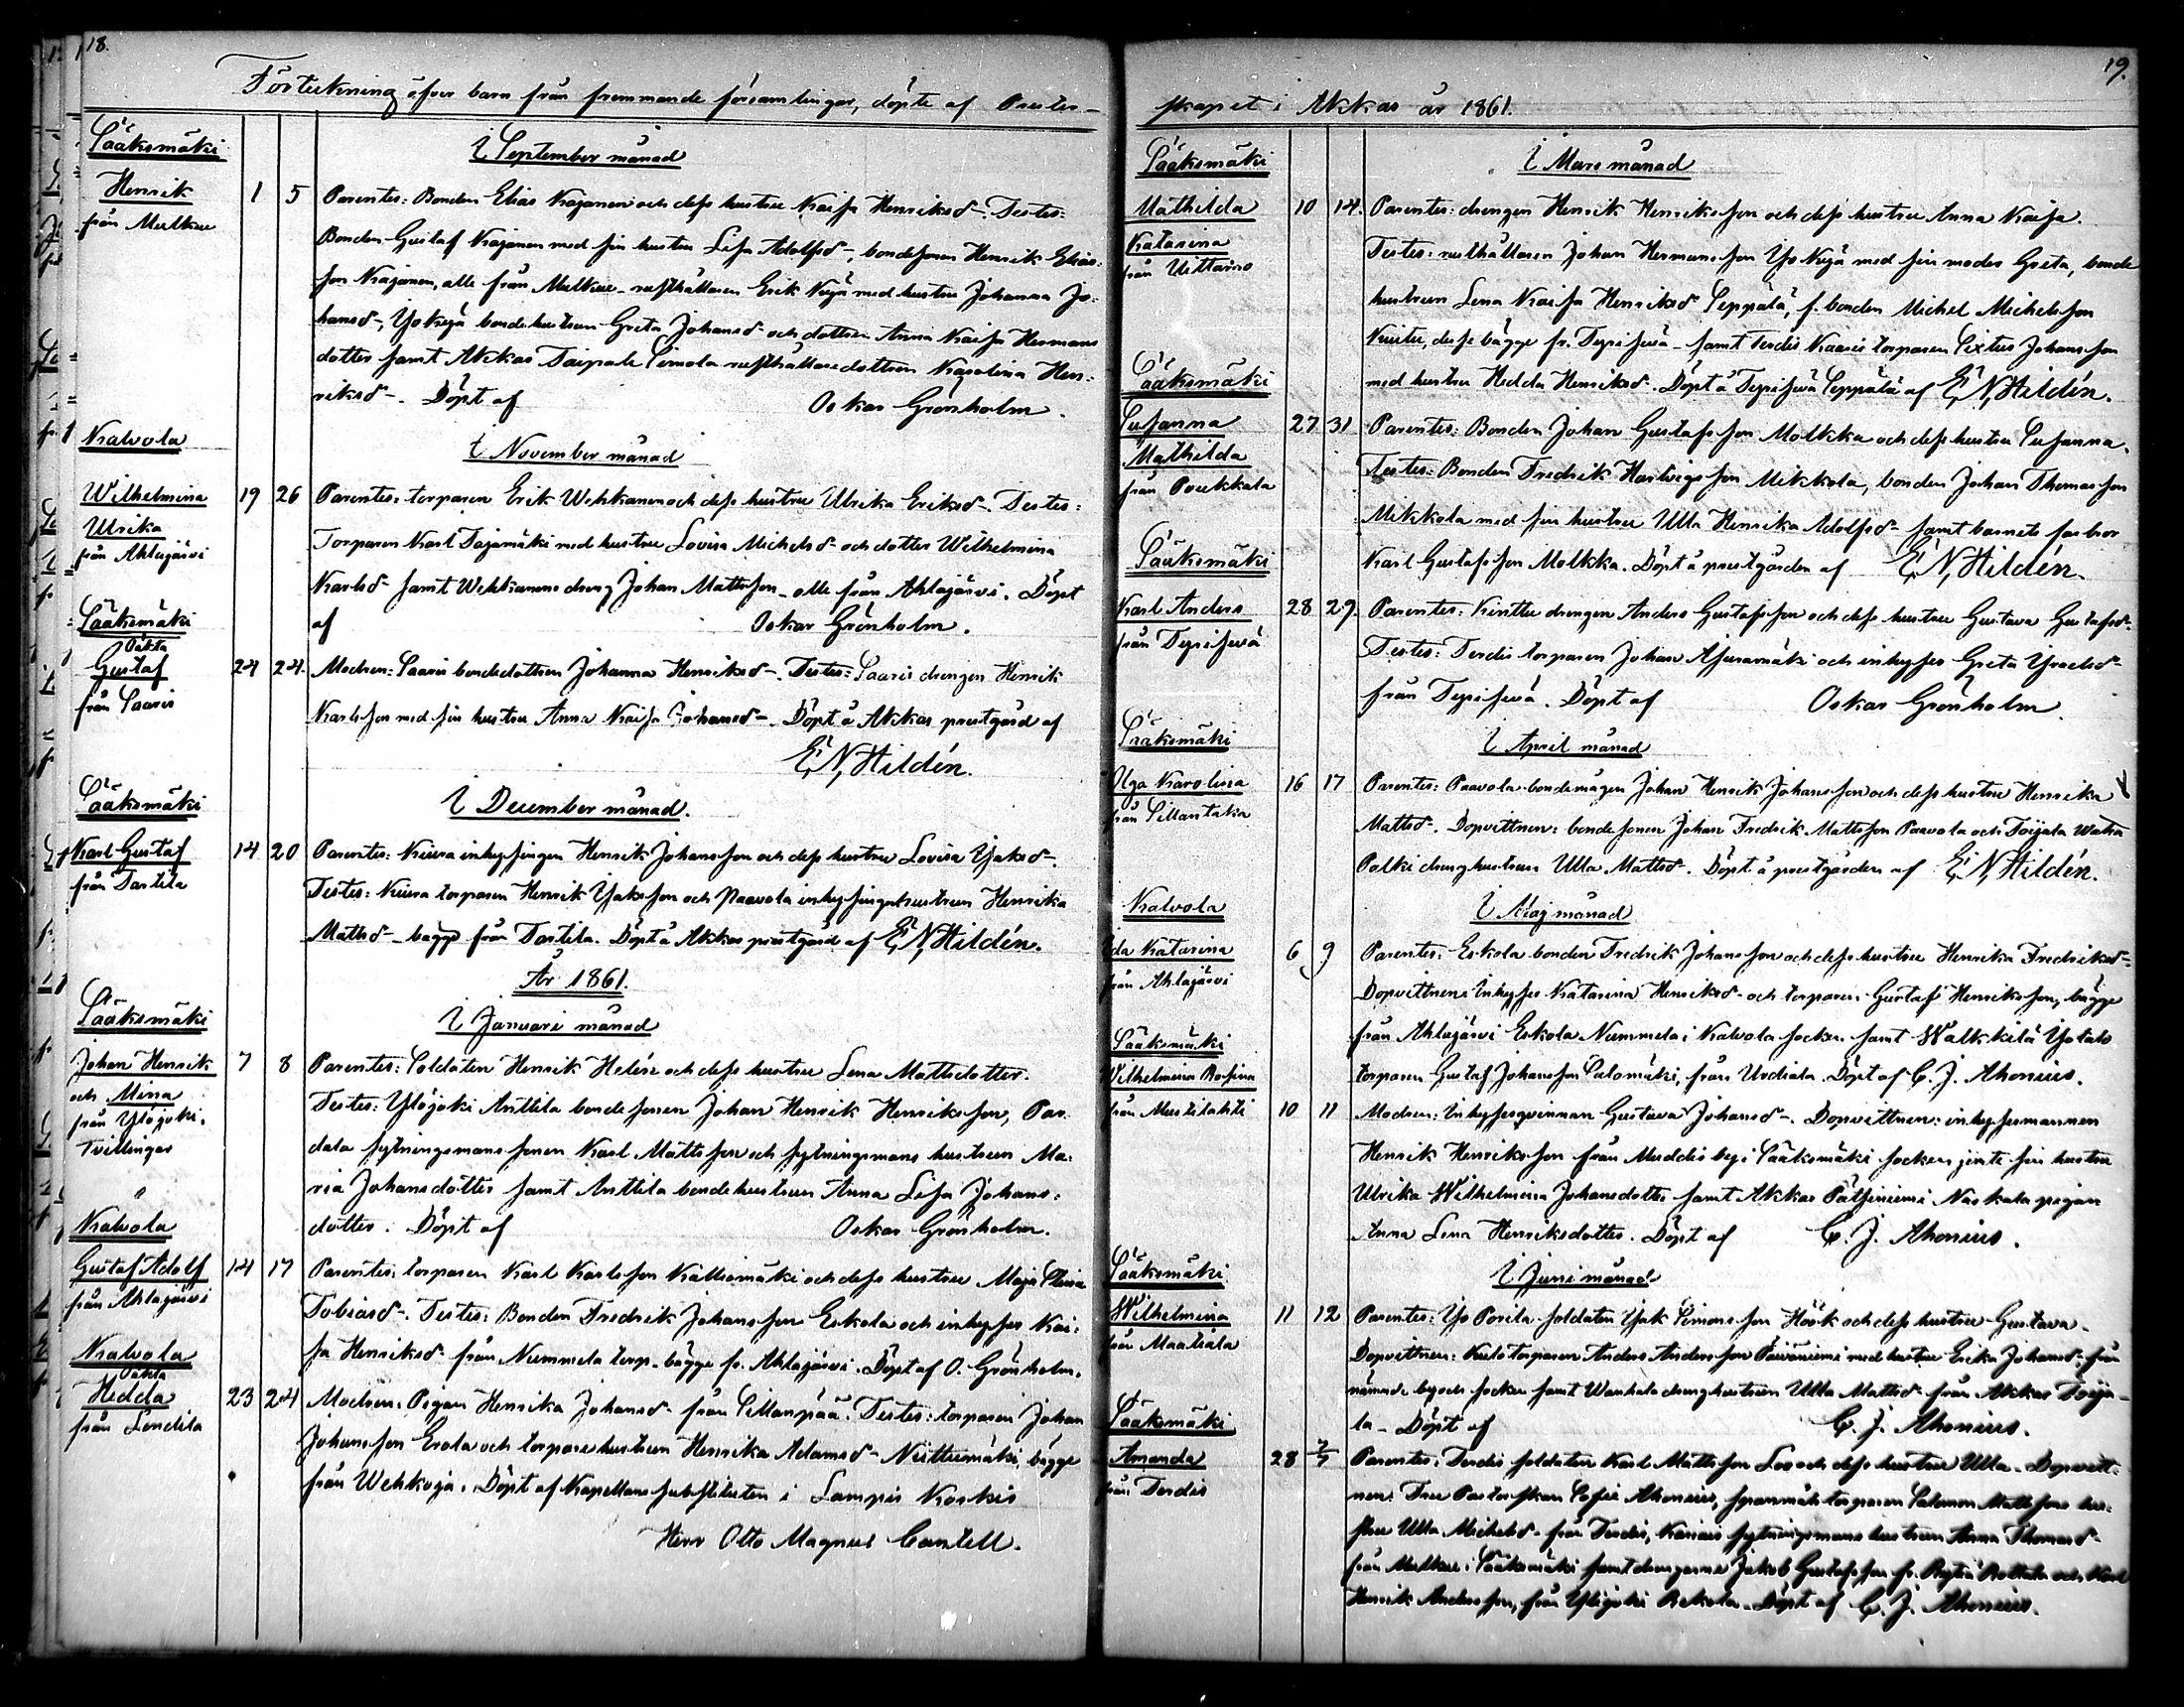 18.
Förteckning öfver barn från fremmande församlingar, döpte af Prester-
Sääksmäki
I September månad
Henrik 1 5 Parentes: Bonden Elias Kajanen och dess hustru Kaisa Henriksd-. Testes:
från Mälkue Bonden Gustaf Kajanen med sin hustru Lisa Adolfsd-, bondesonen Henrik Elias-
son Kajanen, alle från Mälkue - rusthållaren Erik Nygå med hustru Johanna Jo-
hansd-, Yo Nygå bondehustrun Greta Johansd- och dottren Anna Kaisa Hermans
dotter samt Akkas Taipale Simola rusthållaredottren Karolina Hen-
riksd-. Döpt af Oskar Grönholm.
Kalvola
I November månad
Wilhelmina 19 26 Parentes: torparen Erik Wehkanen och dess hustru Ulrika Eriksd-. Testes:
Ulrika Torparen Karl Tajamäki med hustru Lovisa Michelsd- och dotter Wilhelmina
från Ahlajärvi Karlsd- samt Wehkanens dreng Johan Mattsson - alle från Ahlajärvi. Döpt
af Oskar Grönholm.
Sääksmäki
Oäkta
Gustaf 24 24. Modren: Saaris bondedottren Johanna Henriksd-. Testes: Saaris drengen Henrik
från Saaris Karlsson med sin hustru Anna Kaisa Johansd-. Döpt å Akkas prestgård af
E. N. Hildén.
Sääksmäki
I December månad.
Karl Gustaf 14 20 Parentes: Kiura inhysingen Henrik Johansson och dess hustru Lovisa Isaksd-.
från Tarttila Testes: Kiura torparen Henrik Isaksson och Paavola inhysingehustrun Henrika
Mattsd- - bägge från Tarttila. Döpt å Akkas prestgård af E. N. Hildén.
År 1861.
Sääksmäki
I Januari månad
Johan Henrik 7 8 Parentes: Soldaten Henrik Helén och dess hustru Lena Mattsdotter.
och Mina Testes: Ylöjoki Anttila bondesonen Johan Henrik Henriksson, Par-
från Ylöjoki. dala sytningsmans sonen Karl Mattsson och sytningsmans hustrun Ma-
Tvillingar ria Johansdotter samt Anttila bondehustrun Anna Lisa Johans-
dotter. Döpt af Oskar Grönholm.
Kalvola
Gustaf Adolf 14 17 Parentes: torparen Karl Karlsson Kalliomäki och dess hustru Maja Stina
från Ahlajärvi Tobiasd-. Testes: Bonden Fredrik Johansson Eskola och inhyses Kai-
sa Henriksd- från Nummela torp - bägge fr. Ahlajärvi. Döpt af O. Grönholm.
Kalvola
Oäkta
Hedda 23 24 Modren: Pigan Henrika Johansd- från Sillanpää. Testes: torparen Johan
från Lendila Johansson Erola och torparehustrun Henrika Adamsd- Niittumäki, bägge
från Wehkoja. Döpt af Kapellans substituten i Lampis Koskis
Herr Otto Magnus Cantell.
19.
skapet i Akkas år 1861.
Sääksmäki
I Mars månad
Mathilda 10 14. Parentes: drengen Henrik Henriksson och dess hustru Anna Kaisa.
Katarina Testes: rusthållaren Johan Hermansson Yo Nygå med sin moder Greta, bonde
från Uittamo hustrun Lena Kaisa Henriksd- Seppälä, f. bonden Michel Michelsson
desse bägge fr. - samt Terdis Kaaris torparen Sixtus Johansson
Sääksmäki med hustru Hedda Henriksd-. Döpt å Seppälä af E. N. Hildén.
Susanna 27 31 Parentes: Bonden Johan Gustafsson Molkka och dess hustru Susanna.
Mathilda Testes: Bonden Fredrik Hartvigsson Mikkola, bonden Johan Thomasson
från Poukkala Mikkola med sin hustru Ulla Henrika Adolfsd- samt barnets farbror
Sääksmäki Karl Gustafsson Molkka. Döpt å prestgården af E. N. Hildén.
Karl Anders 28 29. Parentes: drengen Anders Gustafsson och dess hustru Gustava Gustafsd-
Testes: Terdis torparen Johan och inhyses Greta
Döpt af Oskar Grönholm.
Sääksmäki
I April månad
Olga Karolina 16 17 Parentes: Paavola bondemågen Johan Henrik Johansson och dess hustru Henrika
från Sillantaka Mattsd-. Dopvittnen: bondesonen Johan Fredrik Mattsson Paavola och Toijala
drenghustrun Ulla Mattsd-. Döpt å prestgården af E. N. Hildén.
Kalvola
I Maj månad
Ida Katarina 6 9 Parentes: Eskola bonden Fredrik Johansson och dess hustru Henrika Fredriksd-
från Ahlajärvi Dopvittnen: Inhyses Katarina Henriksd- och torparen Gustaf Henriksson, bägge
från Ahlajärvi Eskola Nummela i Kalvola socken samt Walkkilä
Sääksmäki torparen Gustaf Johansson Salomäki, från Urdiala. Döpt af C. J. Ahonius.
Wilhelmina Rosina
från 10 11 Modren: Inhysesqvinnan Gustava Johansd-. Dopvittnen: inhysesmannen
Henrik Henriksson från Muddis by i Sääksmäki socken jemte sin hustru
Ulrika Wilhelmina Johansdotter samt Akkas pigan
Anna Lena Henriksdotter. Döpt af C. J. Ahonius.
Sääksmäki
I Juni månad
Wilhelmina 11 12 Parentes: Yo Porila soldaten Isak Simonsson Höök och dess hustru Gustava.
från Maatiala Dopvittnen: torparen Anders Andersson Päivöniemi med hustru Erika Johansd- från
nämnde by och socken samt drenghustrun Ulla Mattsd- från Akkas Toija-
Sääksmäki la - Döpt af C. J. Ahonius.
Amanda 28 2/7 Parentes: Terdis soldaten Karl Mattsson Loo och dess hustru Ulla. Dopvitt-
från Terdis nen: Fru Pastorskan Sofie Ahonius, torparen Salomon Mattssons hu-
stru Ulla Michelsd- från Terdis, sytningsmans hustrun Anna Thomasd-
från Mälkue i Sääksmäki samt drengarne Jakob Gustafsson fr. och Karl
Henrik Andersson, från Ylöjoki Rekola. Döpt af C. J. Ahonius.